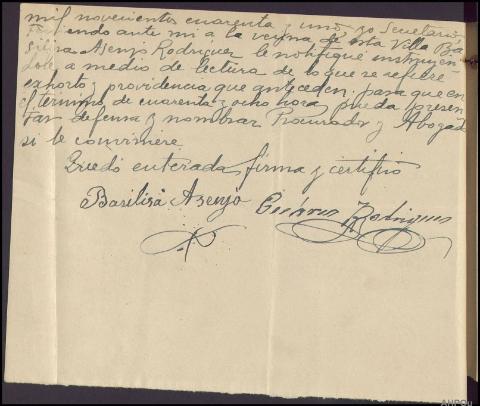 mil novecientos cuarenta y uno yo Secretario
teniendo ante mi a la vecina de esta Villa Ba
silisa Asenjo Rodriguez le notifiqué instruyen
dole a medio de lectura de lo que se refiere
exhorto y providencia que anteceden para que en
el termino de cuarenta y ocho horas pueda presen
tar defensa y nombrar Procurador y Abogado
si le conviniere
Quedó enterada firma y certifico
Basilisa Asenjo Rodriguez